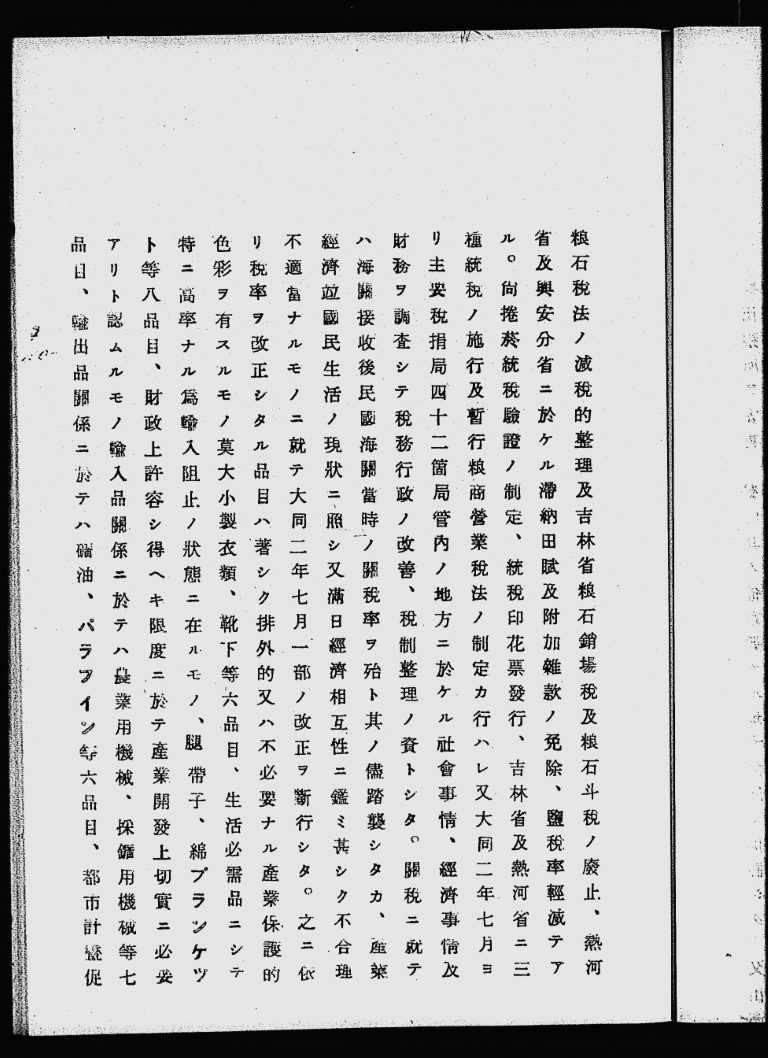 粮石税法ノ減税的整理及吉林省粮石銷場税及粮石斗税ノ廢止、熱河
省及興安分省ニ於ケル滯納田賦及附加雜款ノ免除、鹽税率輕減テア
ル。尙捲菸統税驗證ノ制定、統税印花票發行、吉林省及熱河省ニ三
種統税ノ施行及暫行粮商營業税法ノ制定カ行ハレ又大同二年七月ヨ
リ主要税捐局四十二箇局管內ノ地方ニ於ケル社會事情、經濟事情及
財務ヲ調査シテ税務行政ノ改善、税制整理ノ資トシタ。關税ニ就テ
ハ海關接收後民國海關當時ノ關税率ヲ殆ト其ノ儘踏襲シタカ、產業
經濟竝國民生活ノ現狀ニ照シ又滿日經濟相互性ニ鑑ミ甚シク不合理
不適當ナルモノニ就テ大同二年七月一部ノ改正ヲ斷行シタ。之ニ依
リ税率ヲ改正シタル品目ハ著シク排外的又ハ不必要ナル產業保護的
色彩ヲ有スルモノ莫大小製衣類、靴下等六品目、生活必需品ニシテ
特ニ高率ナル爲輸入阻止ノ狀態ニ在ルモノ、腿帶子、綿ブランケツ
ト等八品目、財政上許容シ得ヘキ限度ニ於テ產業開發上切實ニ必要
アリト認ムルモノ輸入品關係ニ於テハ農業用機械、採鑛用機械等七
品目、輸出品關係ニ於テハ礦油、パラフイン等六品目、都市計畫促